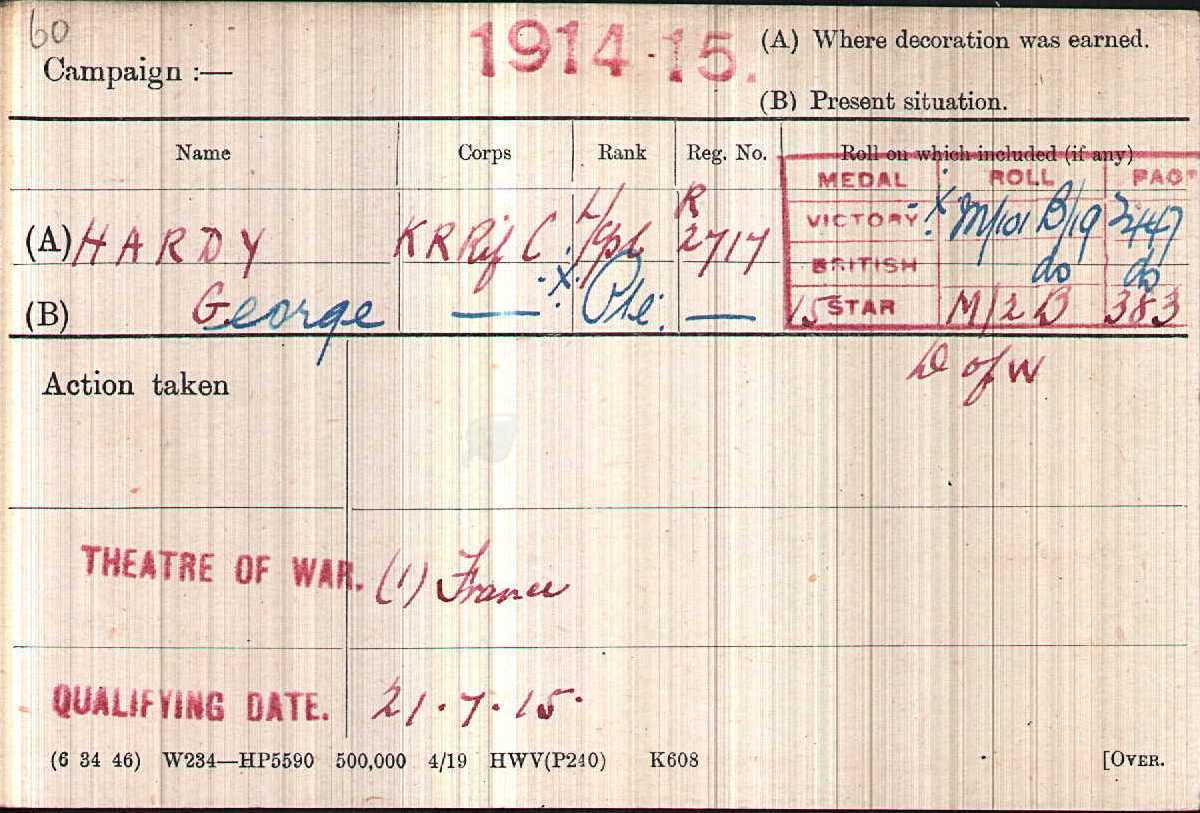 60
Campaign :—
1914-15.
(A) Where decoration was earned.
(B) Present situation.
Name Corps Rank Reg. No. Roll on which included (if any)
MEDAL ROLL PAGE
(A) HARDY K R Rif C. L/Cpl R 2717 VICTORY X M/101 B/19 2447
BRITISH do do
(B) George — X Pte. — 15 STAR M/2 B 383
Action taken D of W
THEATRE OF WAR. (1) France
QUALIFYING DATE. 21.7.15.
(6 34 46) W234—HP5590 500,000 4/19 HWV(P240) K608 [OVER.